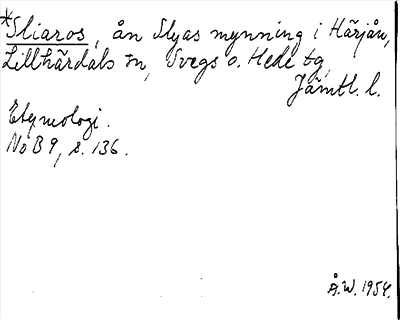 *Sliaros, ån Slyas mynning i Härjån,
Lillhärdals sn, Svegs o. Hede tg,
Jämtl. l.
Etymologi.
NoB 9, s. 136.
Å.W. 1954.